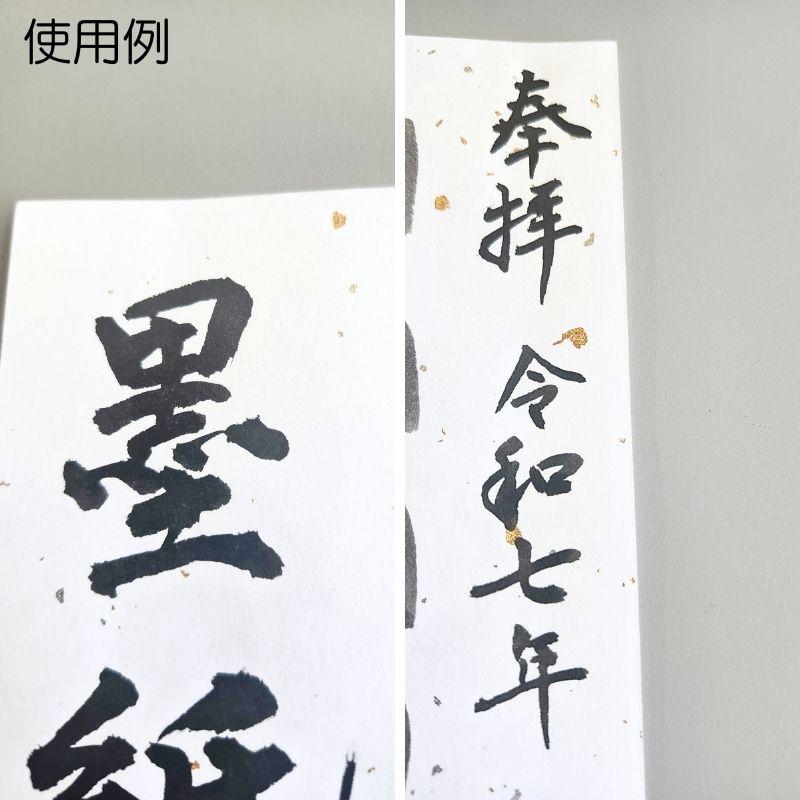 使用例
墨紙
奉拝 令和七年